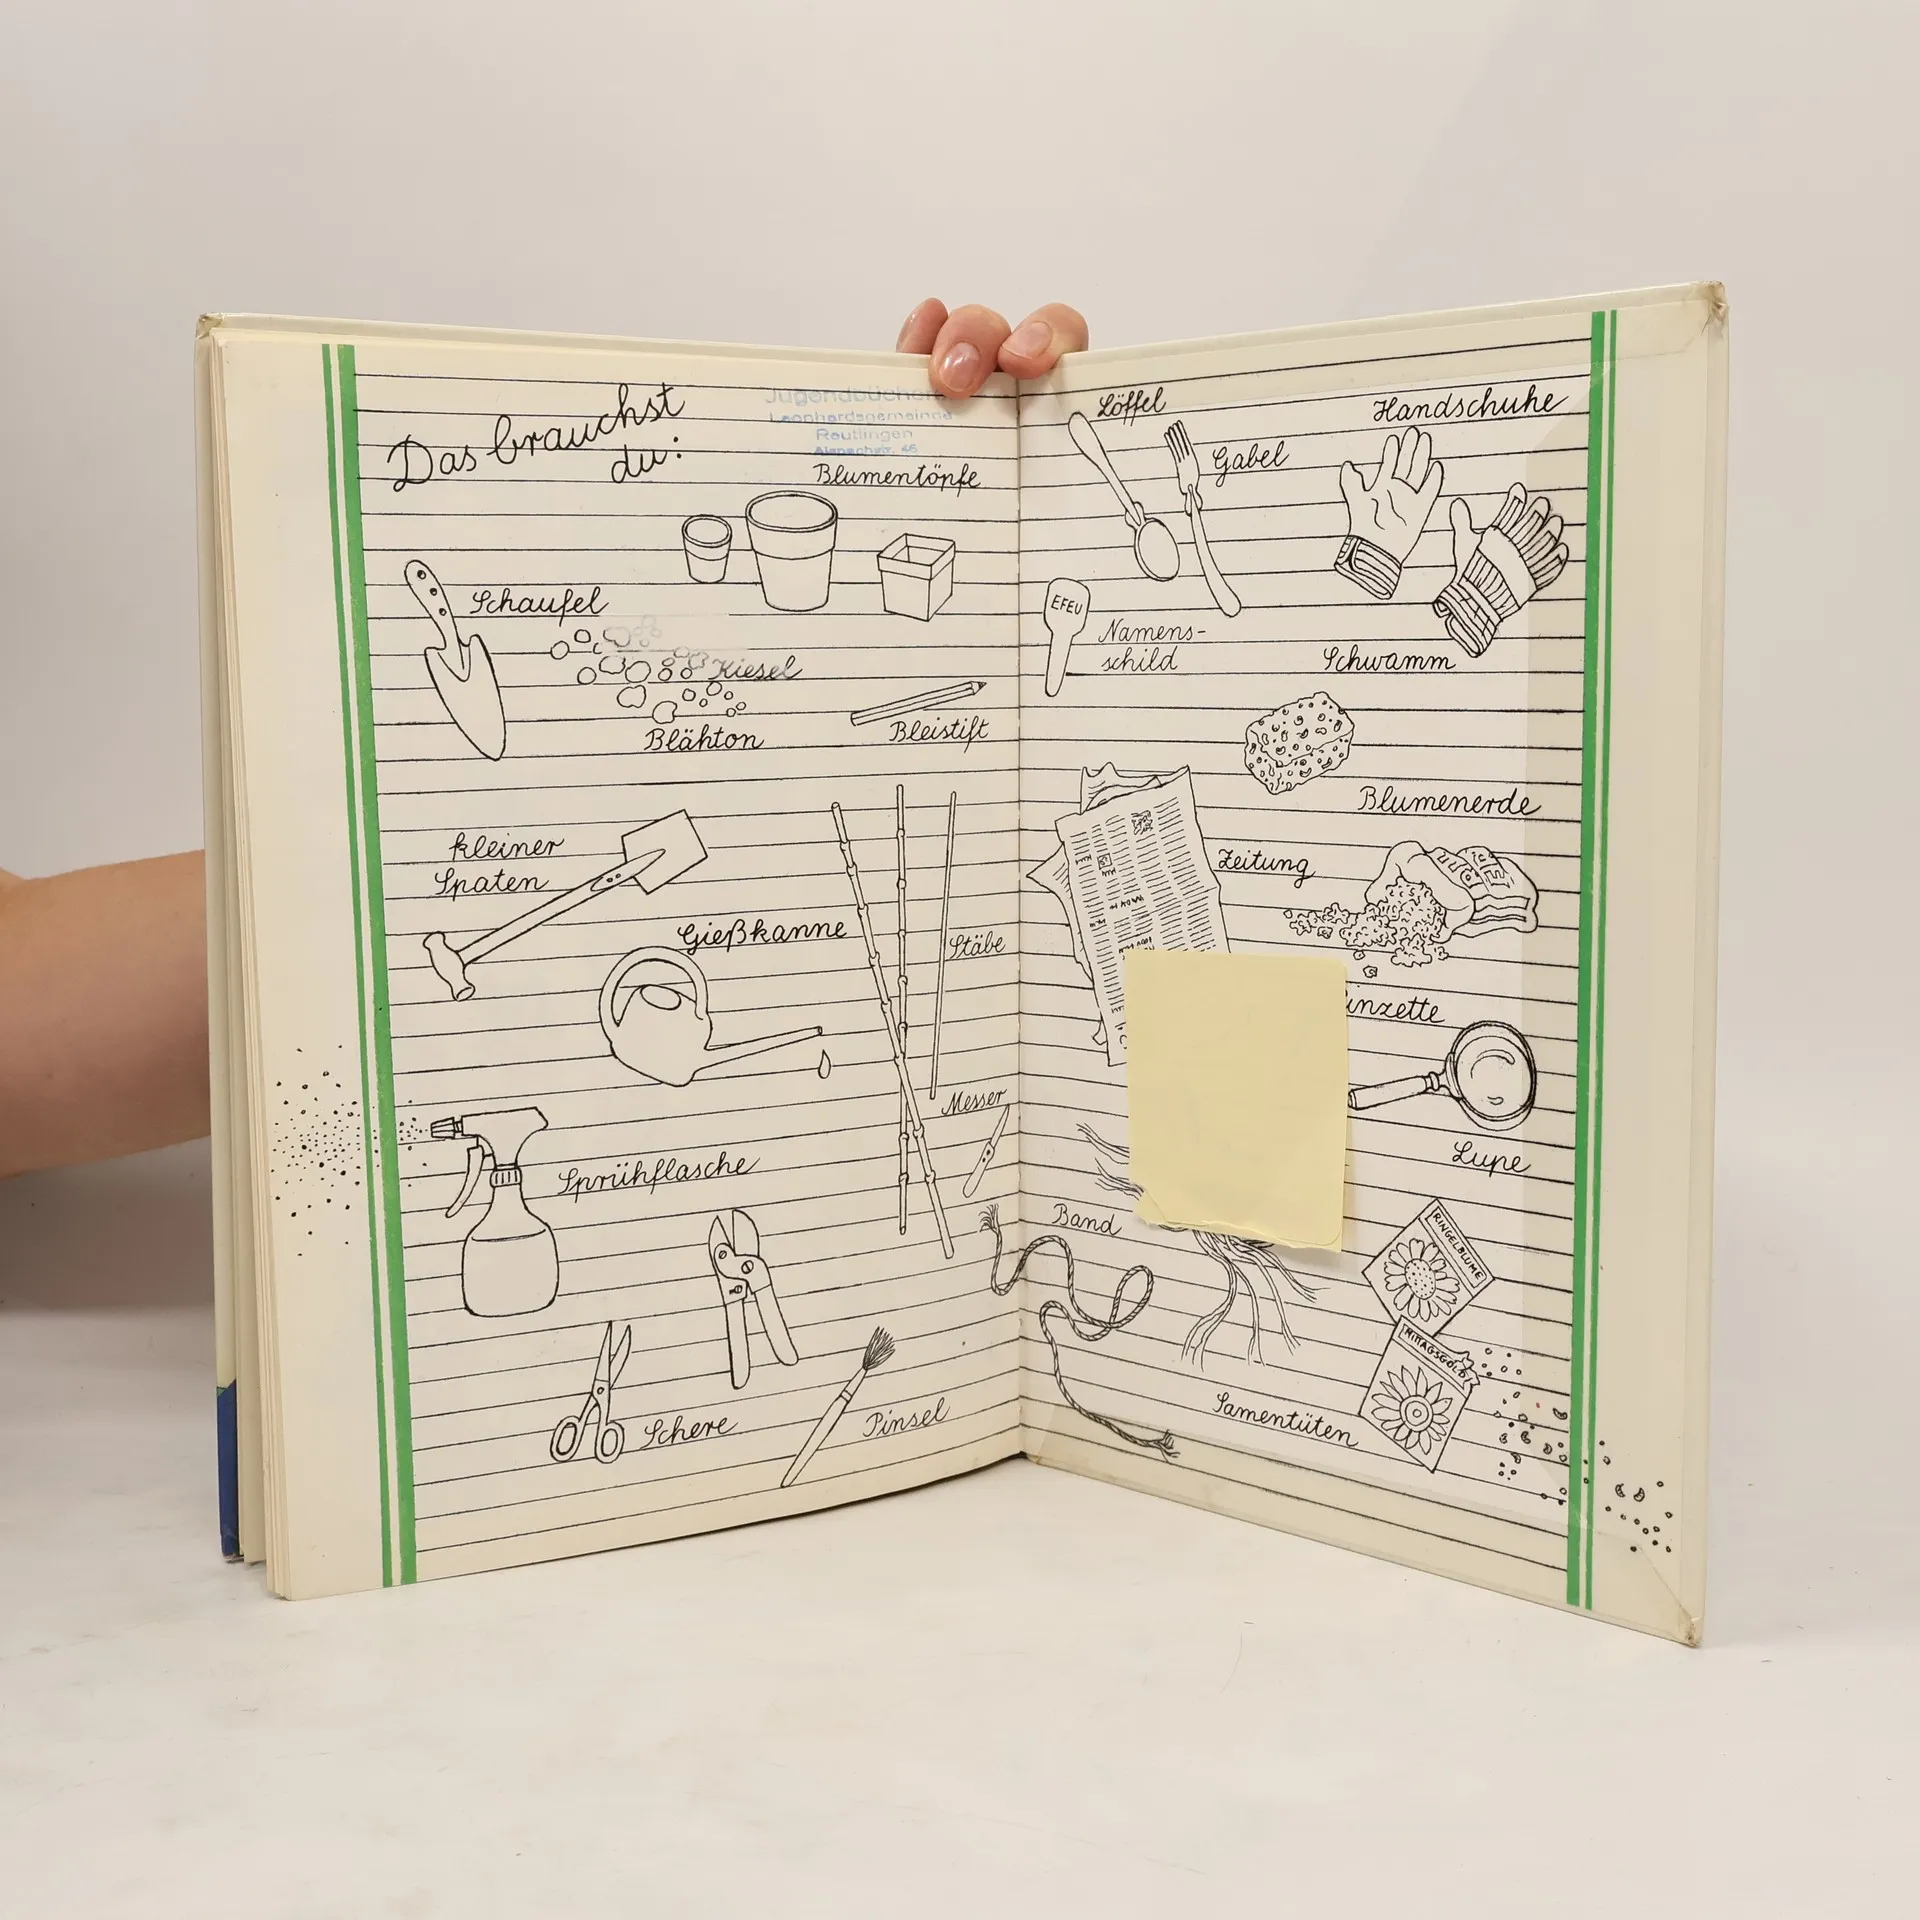 Das brauchst
du:
Leonhardsgemeinde
Reutlingen
Blumentöpfe
Schaufel
Kiesel
Blähton
Bleistift
kleiner
Spaten
Gießkanne
Stäbe
Messer
Sprühflasche
Schere
Pinsel
Löffel
Gabel
Handschuhe
EFEU
Namens-
schild
Schwamm
Blumenerde
Zeitung
inzette
Lupe
Band
RINGELBLUME
MITTAGSGOLD
Samentüten